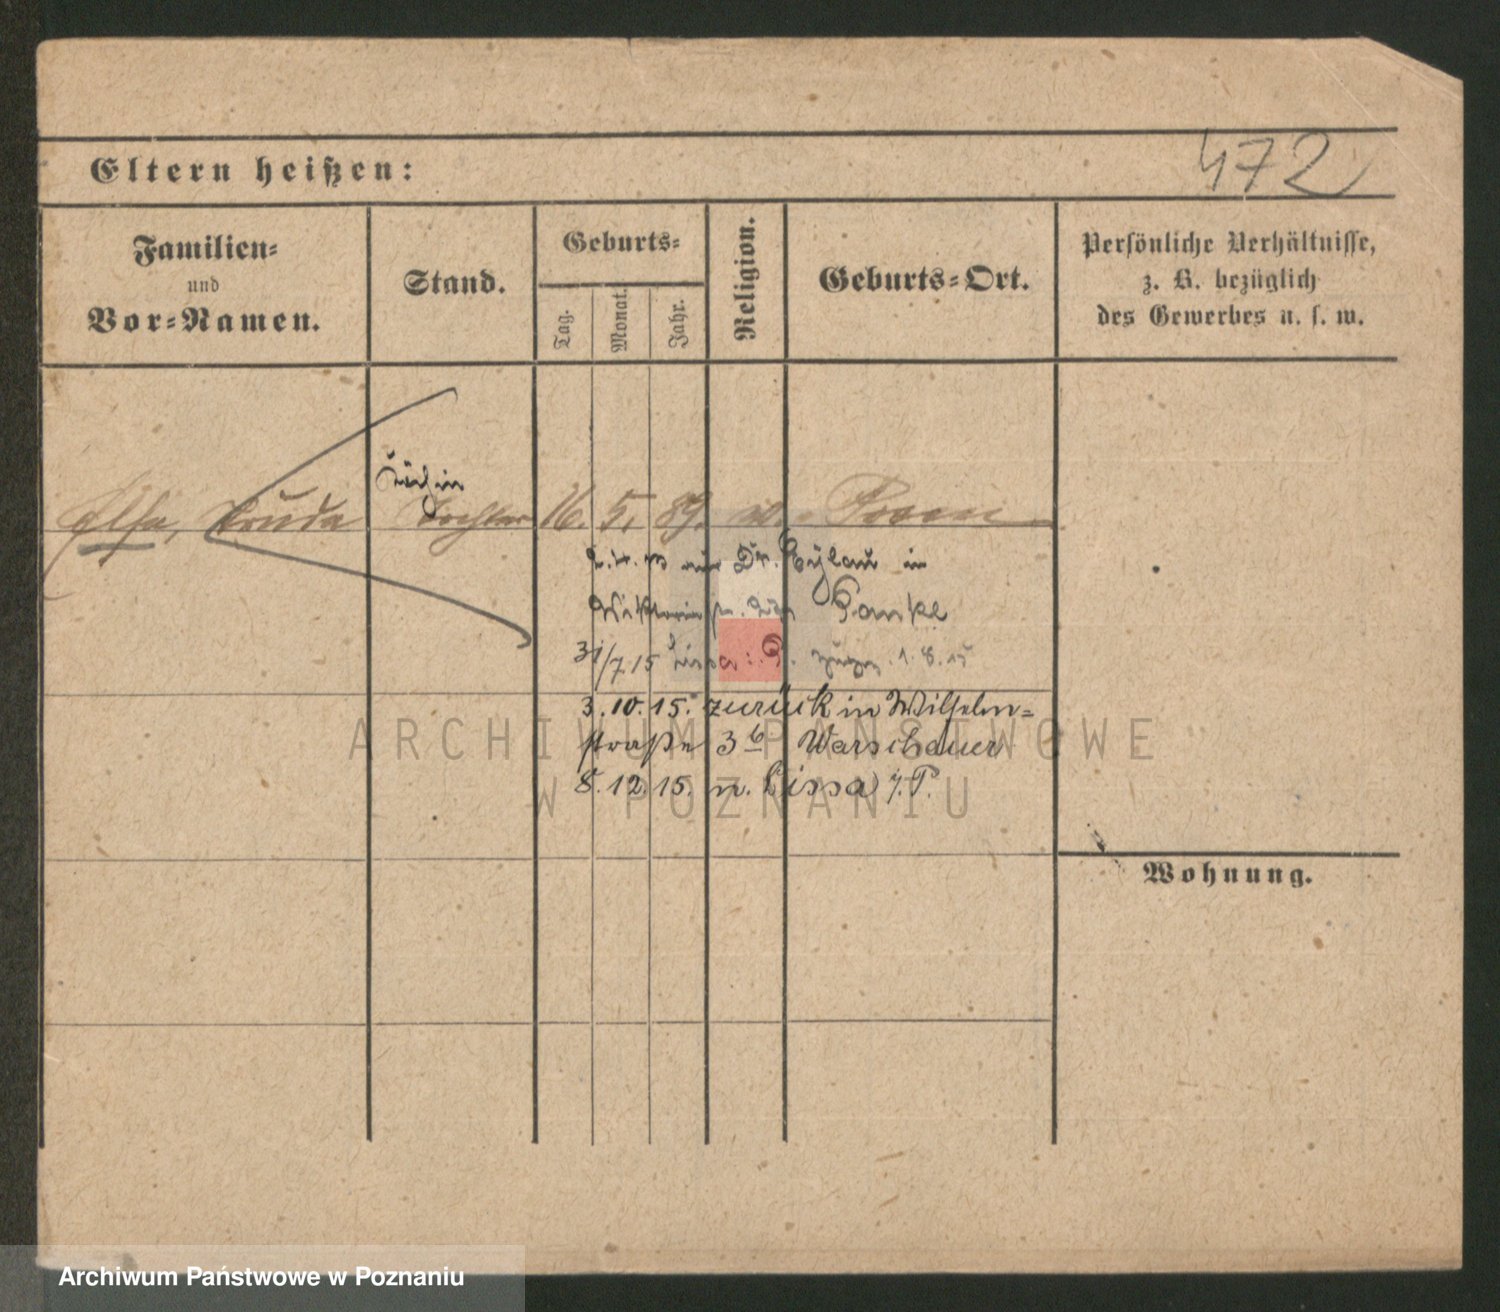 472
Eltern heißen:
Familien-
und
Vor-Namen.
Stand.
Geburts-
Tag.
Monat.
Jahr.
Religion.
Geburts-Ort.
Persönliche Verhältnisse,
z. B. bezüglich
des Gewerbes u. s. w.
Köchin
Elsa, Truda Tochter 16. 5. 89.
Dr. Eylau in
31/7 15 Lissa i. P. 1. 8. 15
3. 10. 15. zurück in Wilhelm-
straße 3 b Warschauer
8. 12. 15. n. Lissa i. P.
Wohnung.
ARCHIWUM PAŃSTWOWE
W POZNANIU
Archiwum Państwowe w Poznaniu